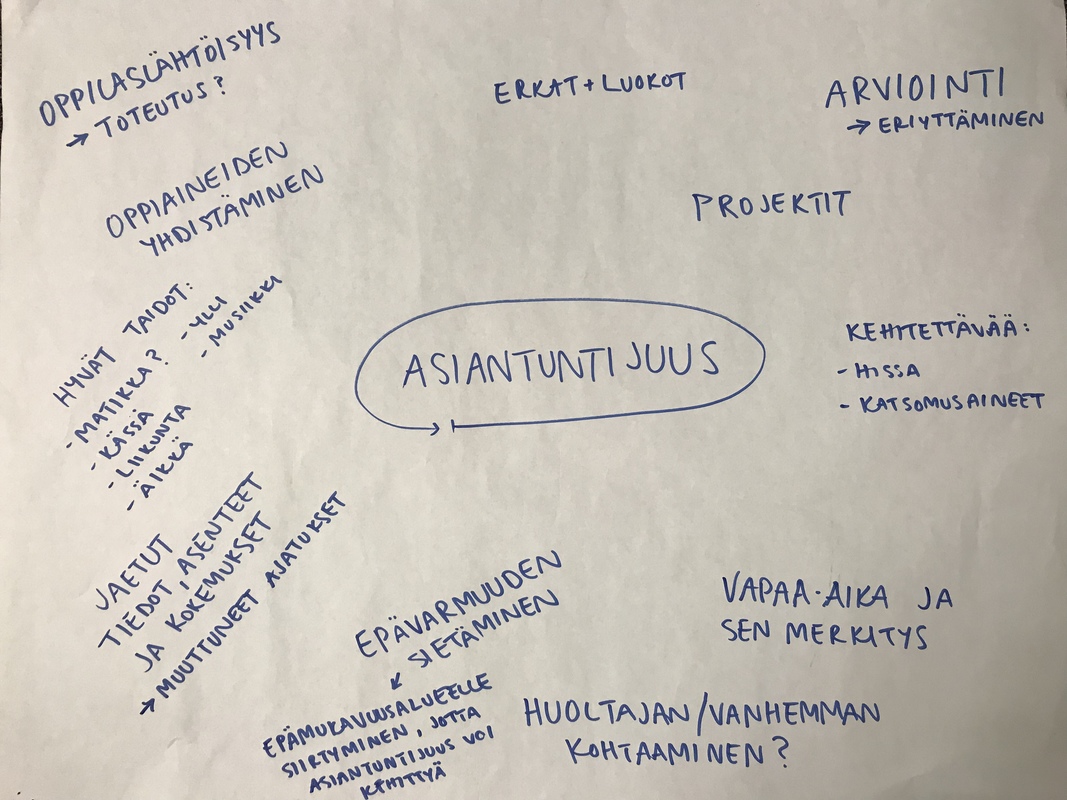 OPPILASLÄHTÖISYYS
→ TOTEUTUS?
ERKAT + LUOKOT
ARVIOINTI
→ ERIYTTÄMINEN
OPPIAINEIDEN
YHDISTÄMINEN
PROJEKTIT
HYVÄT TAIDOT:
- MATIKKA?
- KÄSSÄ
- LIIKUNTA
- ÄIKKÄ
- YLLI
- MUSIIKKI
ASIANTUNTIJUUS
KEHITETTÄVÄÄ:
- HISSA
- KATSOMUSAINEET
JAETUT
TIEDOT, ASENTEET
JA KOKEMUKSET
→ MUUTTUNEET AJATUKSET
EPÄVARMUUDEN
SIETÄMINEN
↙
EPÄMUKAVUUSALUEELLE
SIIRTYMINEN, JOTTA
ASIANTUNTIJUUS VOI
KEHITTYÄ
VAPAA-AIKA JA
SEN MERKITYS
HUOLTAJAN/VANHEMMAN
KOHTAAMINEN?